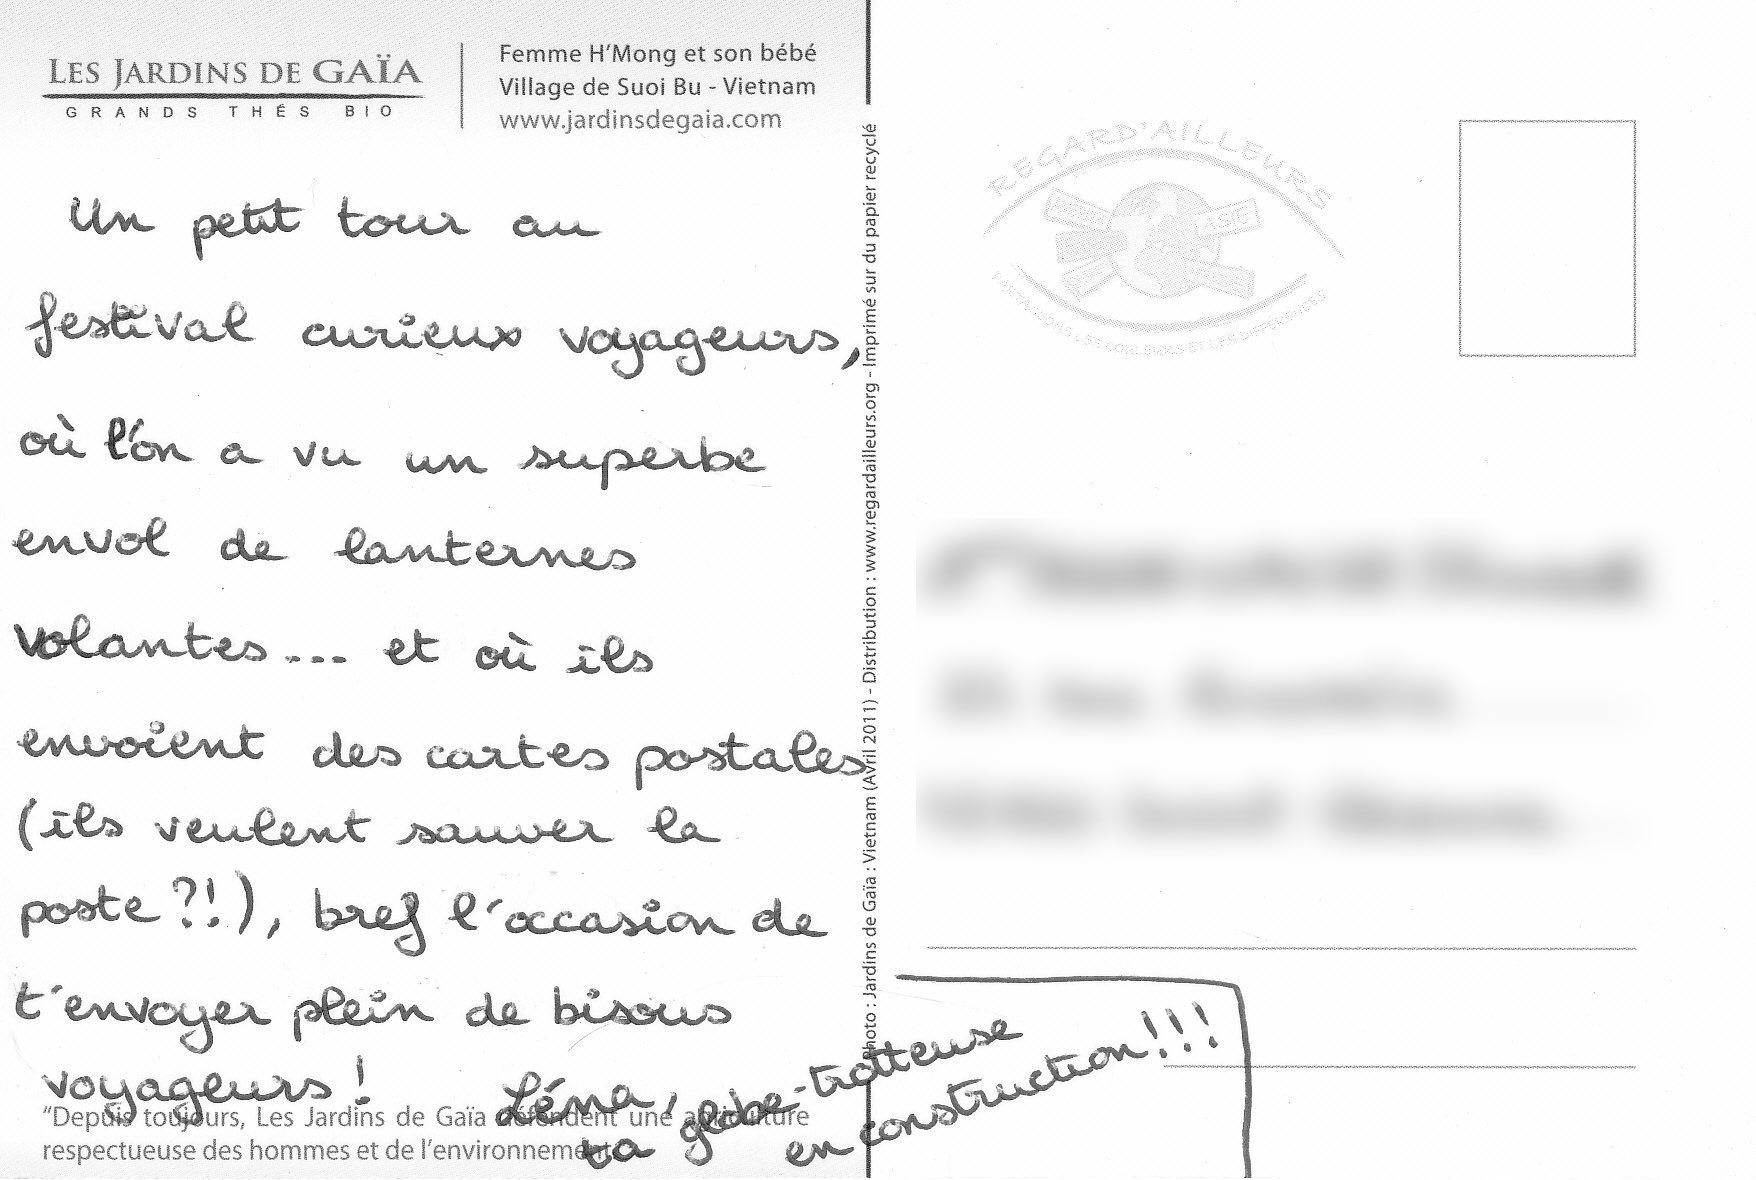 LES JARDINS DE GAÏA
GRANDS THÉS BIO
Femme H'Mong et son bébé
Village de Suoi Bu - Vietnam
www.jardinsdegaia.com
Un petit tour au
festival curieux voyageurs,
où l'on a vu un superbe
envol de lanternes
volantes... et où ils
envoient des cartes postales
(ils veulent sauver la
poste ?!), bref l'occasion de
t'envoyer plein de bisous
voyageurs !
Léna,
ta globe-trotteuse
en construction!!!
"Depuis toujours, Les Jardins de Gaïa défendent une agriculture
respectueuse des hommes et de l'environnement
Photo : Jardins de Gaïa : Vietnam (Avril 2011) - Distribution : www.regardailleurs.org - Imprimé sur du papier recyclé
REGARD'AILLEURS
ASIE
PARTAGEONS LES COULEURS ET LES DIFFÉRENCES